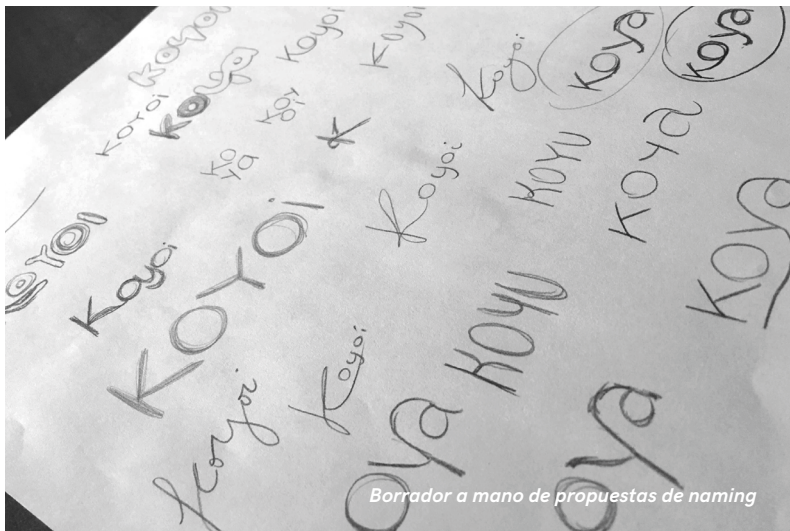 Koyoi
Koyoi
Koyoi
Koyoi
Koya
Koya
KOYOI
KOYa
Koyoi
KO
YA
K
Koyoi
KOYU
KOYA
OYOI
Koyoi
KOYOI
KOYA
Koyoi
Koyoi
KOYU
OYA
OYA
Borrador a mano de propuestas de naming